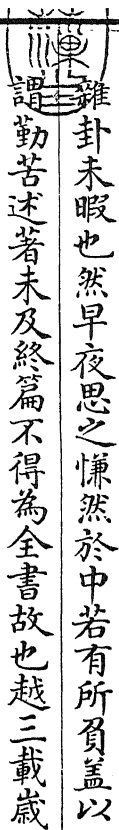 雜卦未暇也然早夜思之慊然於中若有所負葢以
謂勤苦述著未及終篇不得為全書故也越三載歲